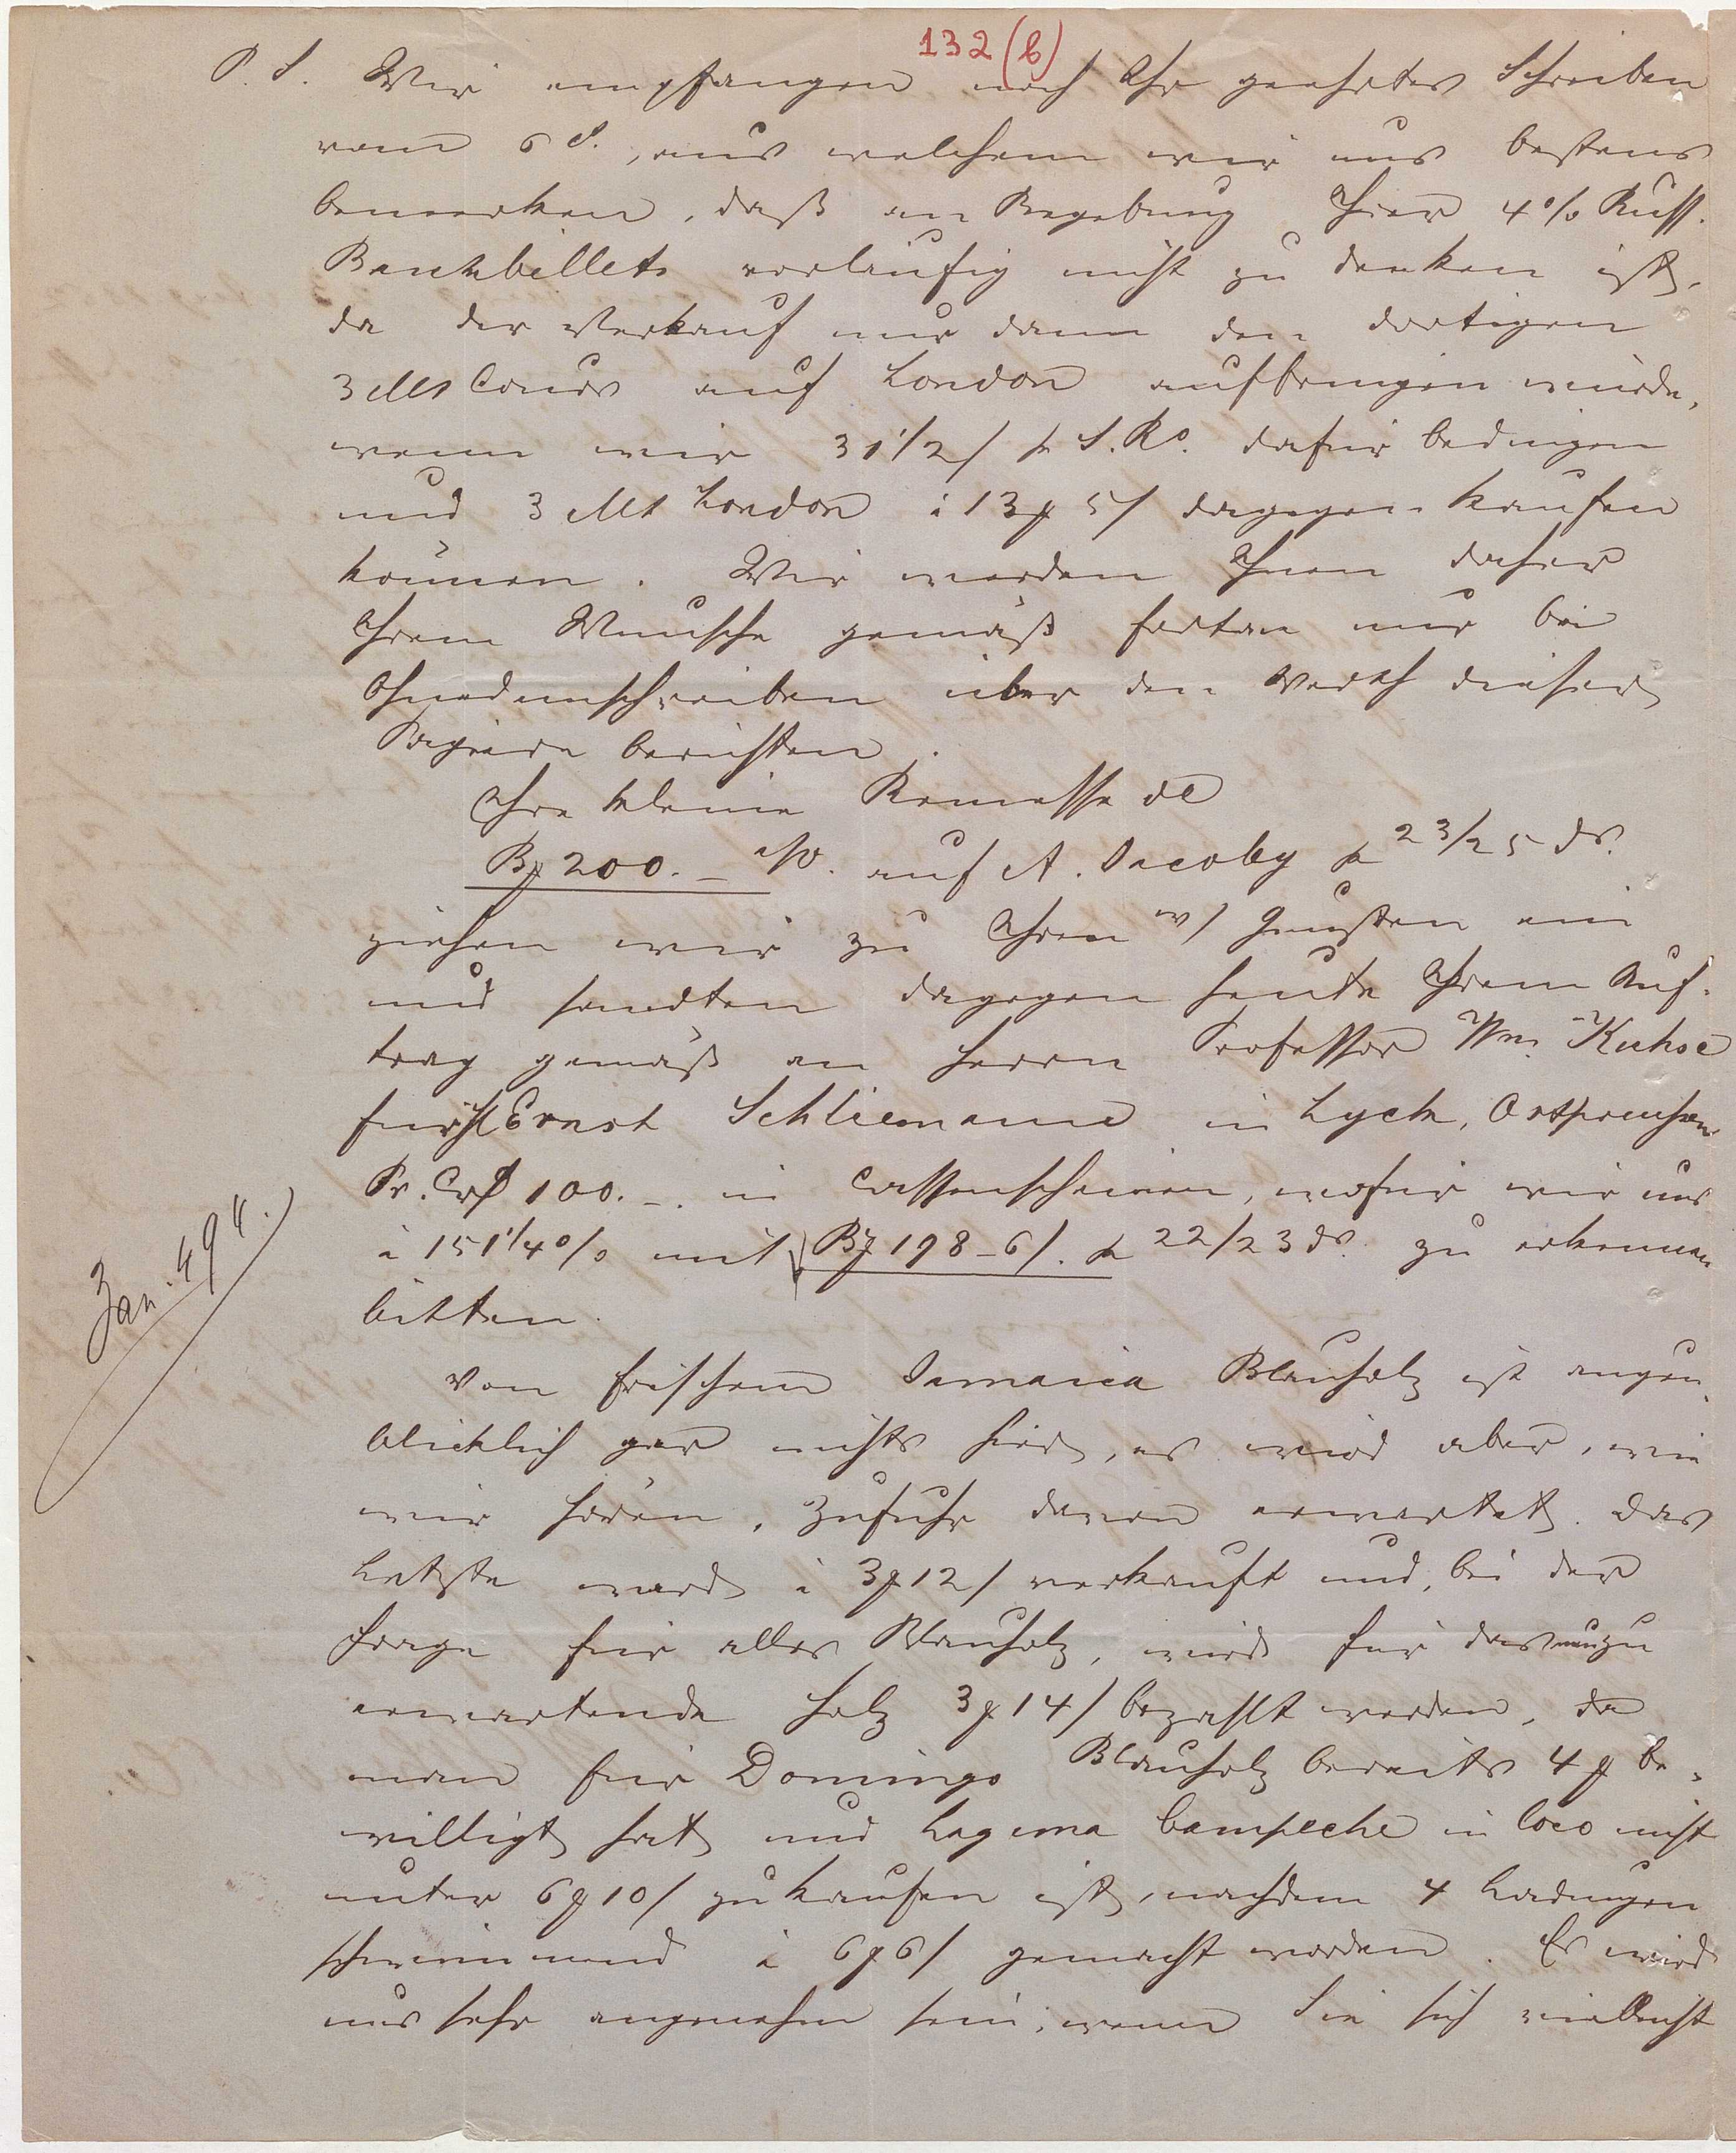 132 (b)
P. S. Wir empfangen noch Ihr geehrtes Schreiben
vom 6 d., aus welchem wir uns bestens
bemerken, daß an Begebung Ihrer 4% Russ.
Bankbillets vorläufig nicht zu denken ist,
da der Verkauf nur dann den dortigen
3 Mt Cours auf London aufbringen würde,
wenn wir 31 1/2 / S. Ro. dafür bedingen
und 3 Mt London à 13 5/ dagegen kaufen
können. Wir werden Ihnen daher
Ihrem Wunsche gemäß fortan nur bei
über den Werth dieser
Papiere berichten.
Ihre kleine Rimesse de
B 200.- auf A. Jacoby 23/25 ds.
ziehen wir zu Ihren Gunsten ein
und sandten dagegen heute Ihrem Auf-
trag gemäß an Herrn Professor Wm. Kuhse
für Ernst Schliemann in Lyck, Ostpreußen
Pr. Cr 100.- in Cassenscheinen, wofür wir uns
à 151 1/4 % mit B 198-6/. 22/23 ds. zu erkennen
bitten.
Jan. 494.
Von frischem Jamaica Blauholz ist augen-
blicklich gar nichts hier, es wird aber, wie
wir hören, Zufuhr davon erwartet. Das
Letzte ward à 3 12/ verkauft und, bei der
Frage für alles Blauholz, wird für das neu zu
erwartende Holz 3 14/ bezahlt werden, da
man für Domingo Blauholz bereits 4 be-
willigt hat und Laguna Campeche in loco nicht
unter 6 10/ zu kaufen ist, nachdem 4 Ladungen
schwimmend à 6 6/ gemacht worden. Es wird
uns sehr angenehm sein, wenn Sie sich vielleicht